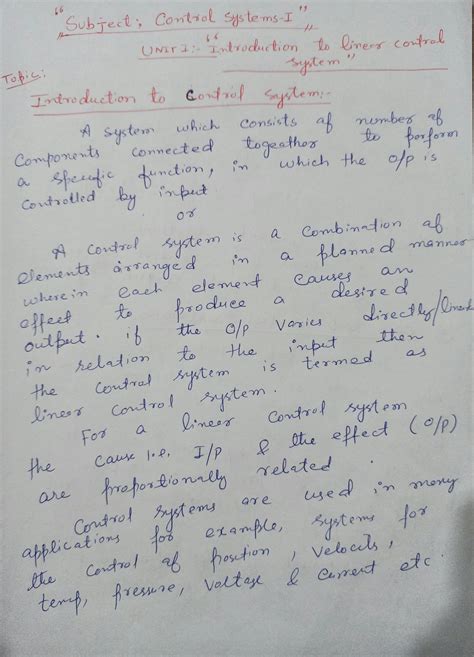 "Subject: Control Systems-I"
UNIT I:- "Introduction to linear control
system"
Topic:
Introduction to Control system:-
A system which consists of number of
components connected togeather to perform
a specific function, in which the o/p is
controlled by input
or
A control system is a combination of
elements arranged in a planned manner
wherein each element causes an
effect to produce a desired
output. if the O/p varies directly/linear
in relation to the input then
the control system is termed as
linear control system.
For a linear control system
the cause i.e. I/p & the effect (O/p)
are proportionally related.
Control systems are used in many
applications for example, systems for
the control of position, velocity,
temp, pressure, voltage & current etc.